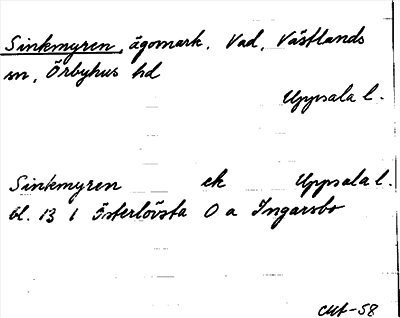 Sinkmyren, ägomark, Vad, Västlands
sn, Örbyhus hd
Uppsala l.
Sinkmyren ek Uppsala l.
bl. 13 I Österlövsta O a Ingarsbo
CMt-58